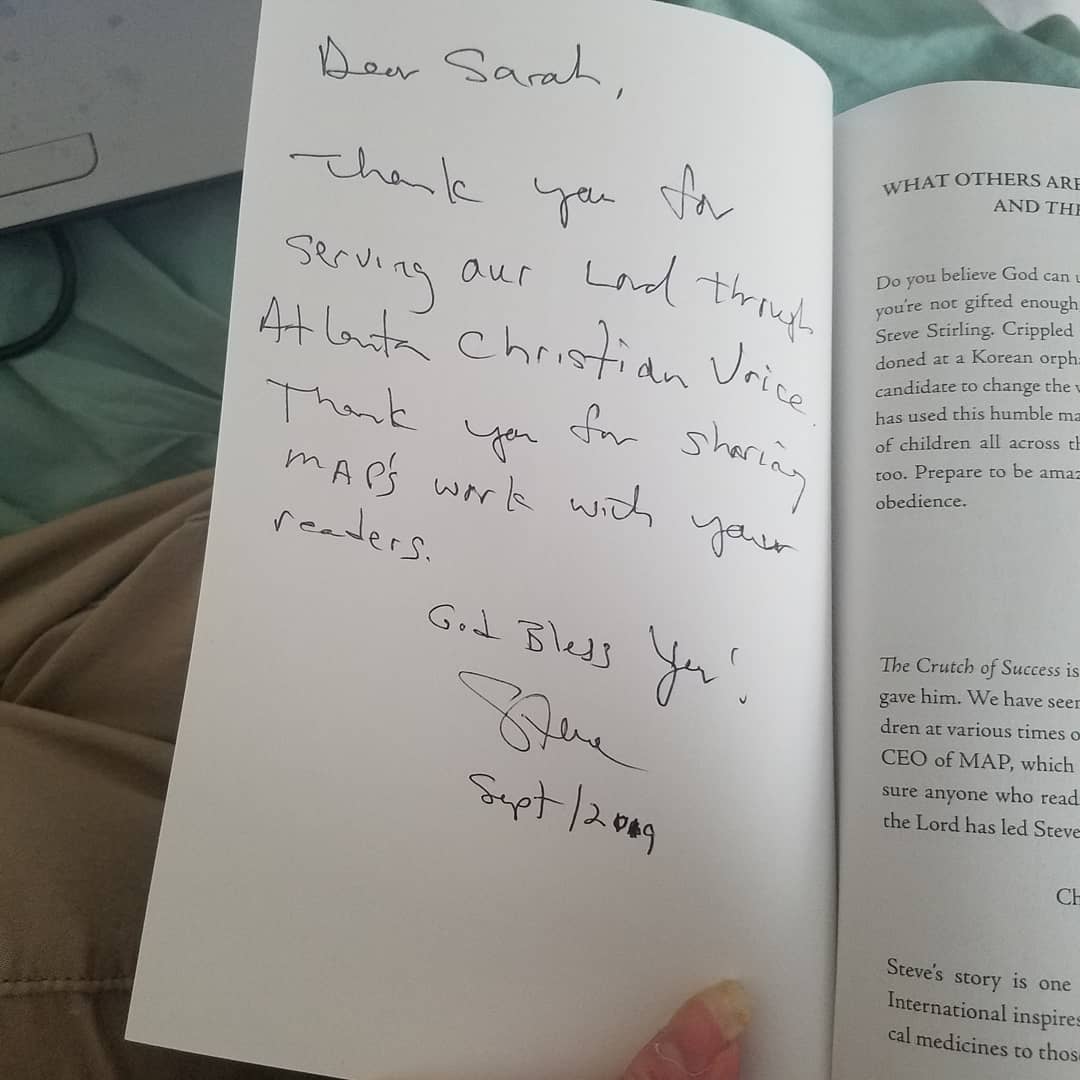 Dear Sarah,
Thank you for
serving our Lord through
Atlanta Christian Voice.
Thank you for sharing
MAP's work with your
readers.
God Bless You!
Steve
Sept/2019
WHAT OTHERS ARE
AND THE
Do you believe God can
you're not gifted enough
Steve Stirling. Crippled
doned at a Korean orph
candidate to change the
has used this humble ma
of children all across th
too. Prepare to be amaz
obedience.
The Crutch of Success is
gave him. We have seen
dren at various times o
CEO of MAP, which
sure anyone who read
the Lord has led Steve
Ch
Steve's story is one
International inspires
cal medicines to those